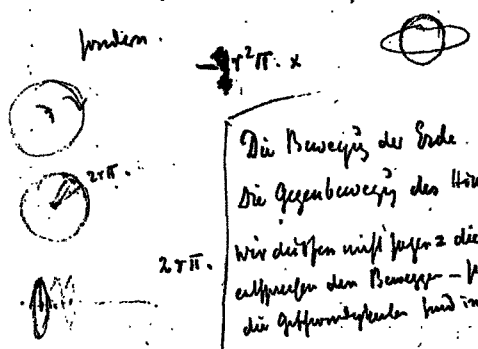 sondern.
r²π. x
2rπ.
2rπ.
Die Bewegung der Erde.
Die Gegenbewegung des
wir dürfen nicht sagen = die
entsprechen den
die Geschwindigkeiten sind in